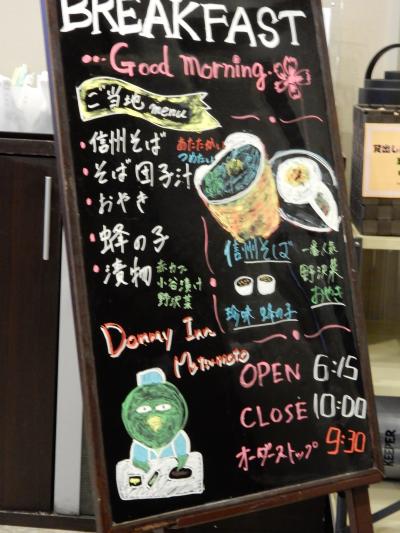 BREAKFAST
Good morning.
ご当地 menu
・信州そば
あたたかい
つめたい
・そば団子汁
・おやき
・蜂の子
・漬物
赤カブ
小谷漬け
野沢菜
信州そば
一番人気
野沢菜
おやき
珍味 蜂の子
Dormy Inn
Matsumoto
OPEN 6:15
CLOSE 10:00
オーダーストップ 9:30
貸出し
KEEPER